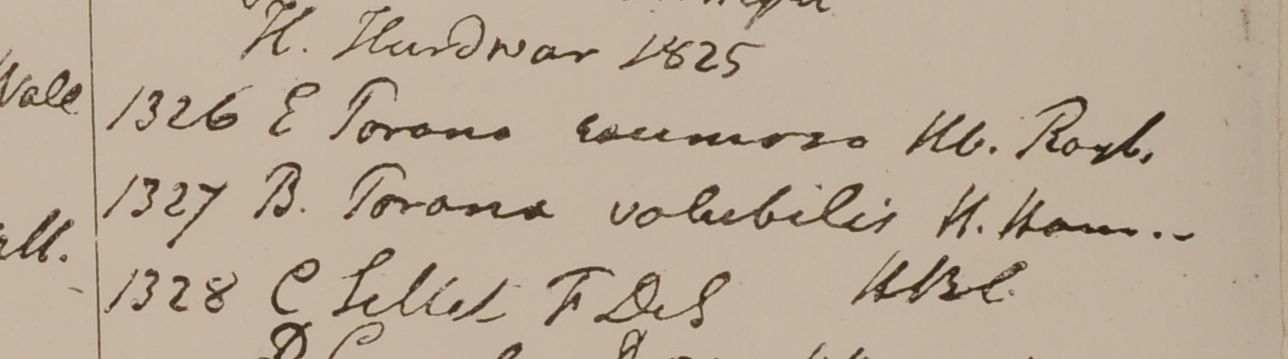 H. Hurdwar 1825
Wall 1326 E Porana racemosa Hb. Roxb.
1327 B. Porana volubilis H. Ham.
all. 1328 C Sillet F DeS HBC.